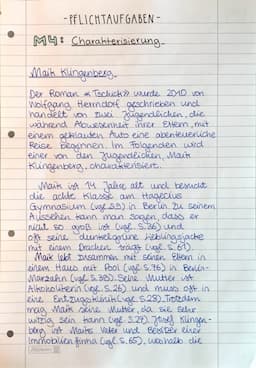 -PFLICHTAUFGABEN-
M4: Charakterisierung
Maik Klingenberg
Der Roman «Tschick» wurde 2010 von
Wolfgang Herrndorf geschrieben und
handelt von zwei Jugendlichen, die
während Abwesenheit ihrer Eltern, mit
einem geklauten Auto eine abenteuerliche
Reise beginnen. Im Folgenden wird
einer von den Jugendlichen, Maik
Klingenberg, charakterisiert.
Maik ist 14 Jahre alt und besucht
die achte Klasse am Hagecius
Gymnasium (vgl. ) in Berlin. Zu seinem
Aussehen kann man sagen, dass er
nicht so groß ist (vgl. S.36) und
oft seine dunkelgrüne Lieblingsjacke
mit einem Drachen trägt (vgl. S. 61)
Maik lebt zusammen mit seinen Eltern in
einem Haus mit Pool (vgl. S.76) in Berlin-
Marzahn (vgl. S.38). Seine Mutter ist
Alkoholikerin (vgl. S.26) und muss oft in
eine Entzugsklinik (vgl. S.28). Trotzdem
mag Maik seine Mutter, da sie sehr
witzig sein kann (vgl. S.27). Josef Klingen-
berg ist Maiks Vater und Besitzer einer
Immobilienfirma (vgl. S. 65), weshalb die